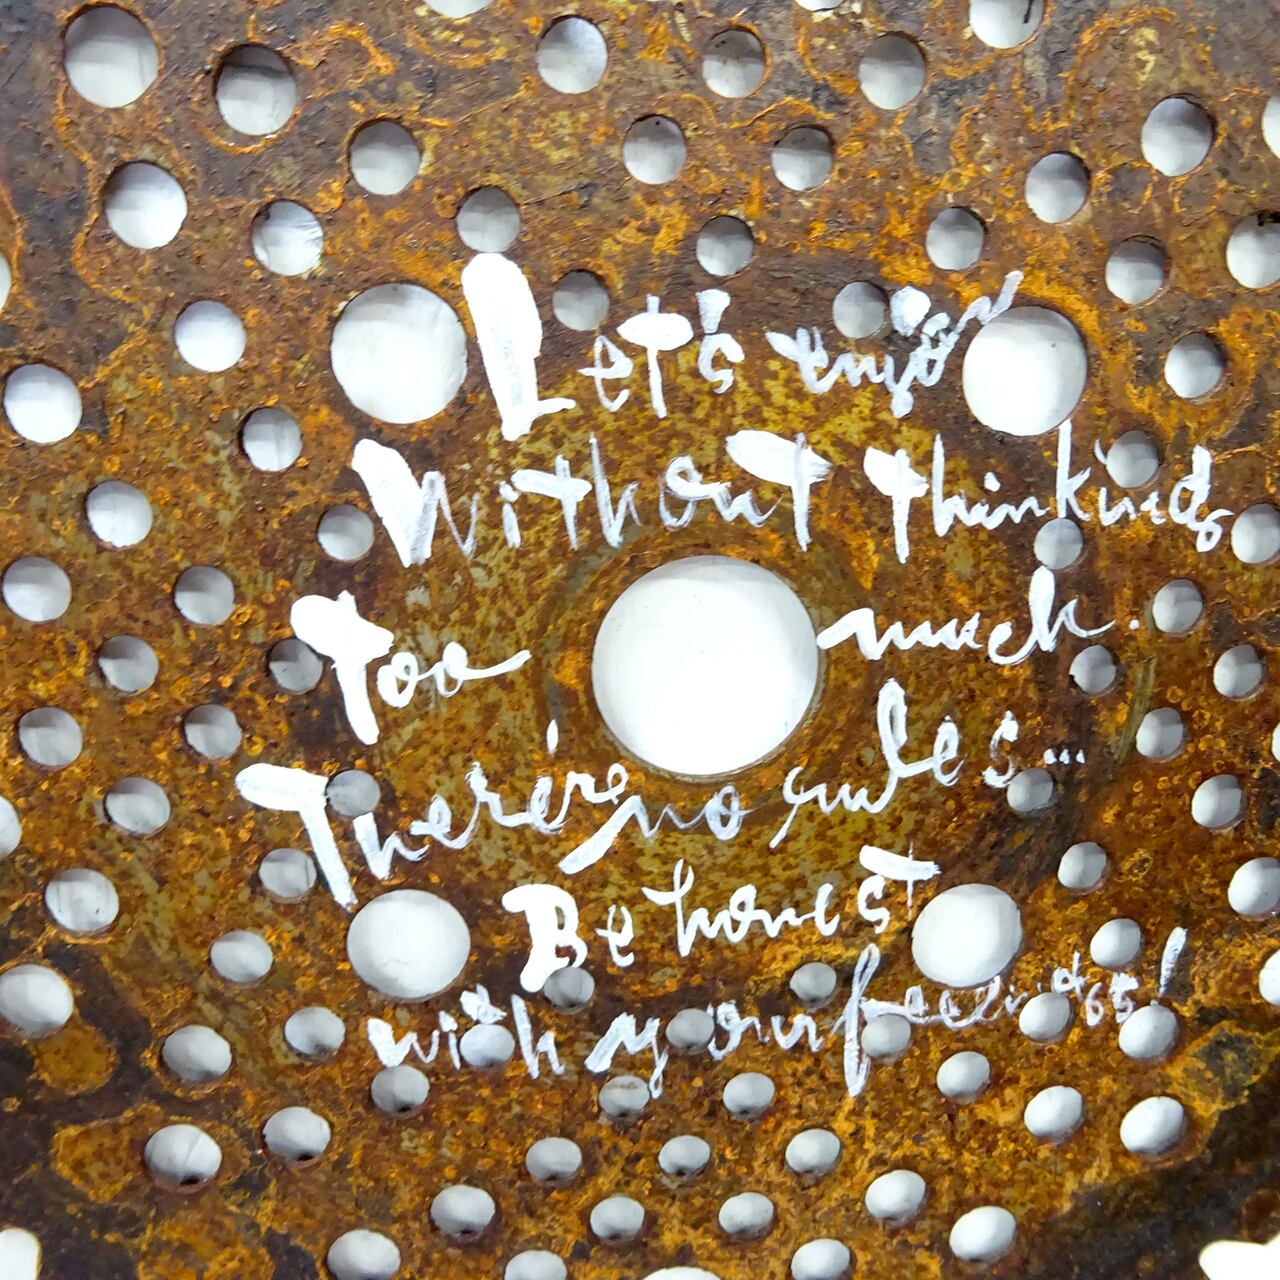 Let's enjoy
Without thinking
too much.
There're no rules...
Be honest
with your feelings!